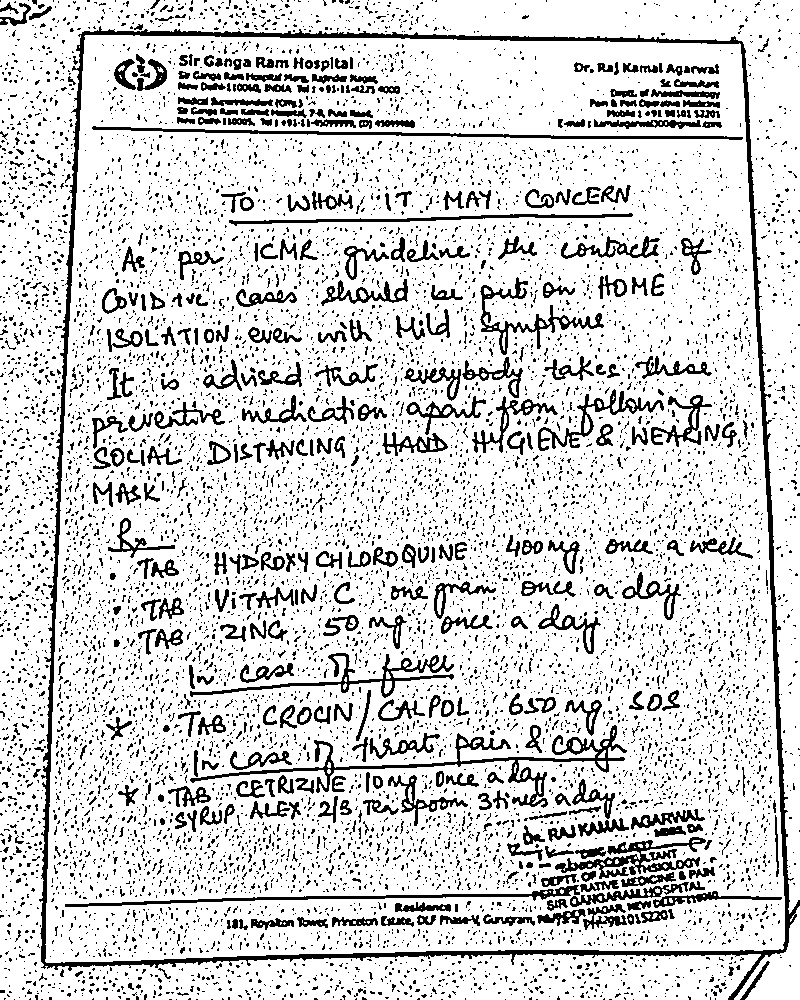 Sir Ganga Ram Hospital
Sir Ganga Ram Hospital Marg, Rajinder Nagar,
New Delhi-110060, INDIA Tel : +91-11-4225 4000
Medical Superintendent (Offs.)
Sir Ganga Ram Kolmet Hospital, 7-B, Pusa Road,
New Delhi-110005, Tel : +91-11-45099999, (D)
Dr. Raj Kamal Agarwal
Sr. Consultant
Deptt. of Anaesthesiology
Pain & Peri Operative Medicine
Mobile : +91 98101 52201
E-mail : kamalagarwal300@gmail.com
TO WHOM IT MAY CONCERN
As per ICMR guideline, the contacts of
COVID +ve cases should be put on HOME
ISOLATION even with Mild Symptoms
It is advised that everybody takes these
preventive medication apart from following
SOCIAL DISTANCING, HAND HYGIENE & WEARING
MASK
Rx
• TAB HYDROXYCHLOROQUINE 400mg once a week
• TAB VITAMIN C one gram once a day
• TAB ZING 50 mg once a day
In case of fever
* • TAB CROCIN/CALPOL 650 mg SOS
In case of throat pain & cough
* • TAB CETRIZINE 10mg once a day.
• SYRUP ALEX 2/3 Tea spoom 3 times a day.
Dr. RAJ KAMAL AGARWAL
MBBS, DA
SENIOR CONSULTANT
DEPTT. OF ANAESTHSIOLOGY
PERIOPERATIVE MEDICINE & PAIN
SIR GANGARAM HOSPITAL
RAJINDER NAGAR, NEW DELHI-110060
PH-9810152201
Residence :
181, Royalton Tower, Princeton Estate, DLF Phase-V, Gurugram,